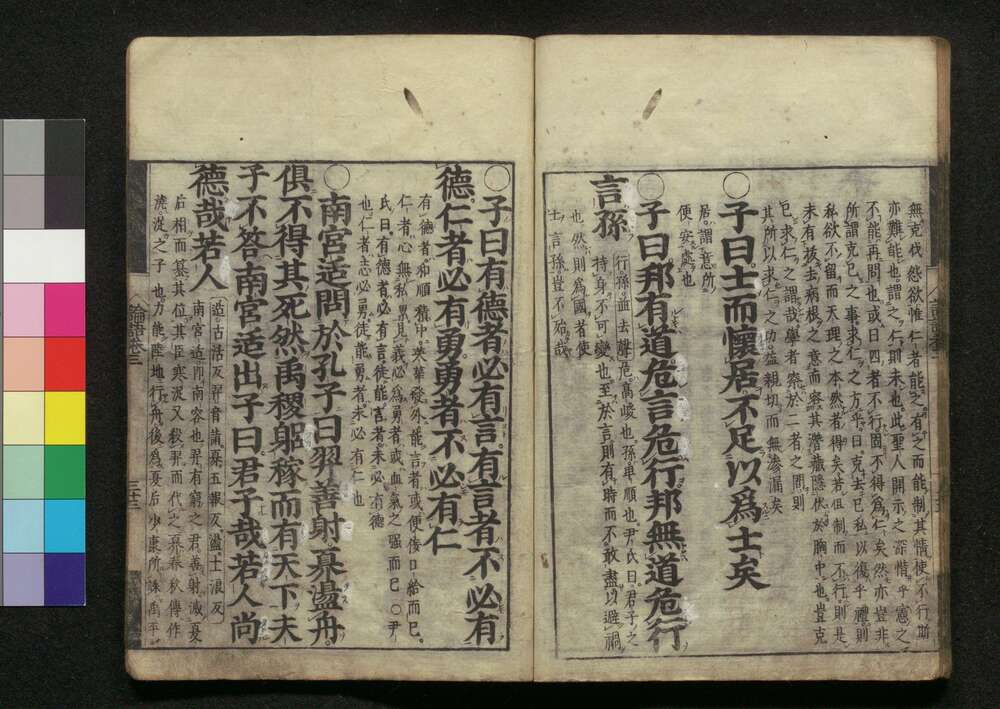 無克伐怨欲惟仁者能之有之而能制其情使不行斯
亦難能也謂之仁則未也此聖人開示之深惜乎憲之
不能再問也或曰四者不行固不得爲仁矣然亦豈非
所謂克己之事求仁之方乎曰克去己私以復乎禮則
私欲不留而天理之本然者得矣若但制而不行則是
未有拔去病根之意而容其潛藏隱伏於胸中也豈克
己求仁之謂哉學者察於二者之間則
其所以求仁之功益親切而無滲漏矣
○子曰士而懷居不足以爲士矣
居謂意所
便安處也
○子曰邦有道危言危行邦無道危行
言孫
行孫並去聲○危高峻也孫卑順也尹氏曰君子之
持身不可變也至於言則有時而不敢盡以避禍
也然則爲國者使
士言孫豈不殆哉
○子曰有德者必有言有言者不必有
德仁者必有勇勇者不必有仁
有德者和順積中英華發外能言者或便佞口給而已
仁者心無私累見義必爲勇者或血氣之強而已○尹
氏曰有德者必有言徒能言者未必有德
也仁者志必勇徒能勇者未必有仁也
○南宮适問於孔子曰羿善射奡盪舟
俱不得其死然禹稷躬稼而有天下夫
子不答南宮适出子曰君子哉若人尚
德哉若人
适古活反羿音詣奡五報反盪土浪反
南宮适卽南容也羿有窮之君善射滅夏
后相而簒其位其臣寒浞又殺羿而代之奡春秋傳作
澆浞之子也力能陸地行舟後爲夏后少康所誅禹平
論語卷三
三十三